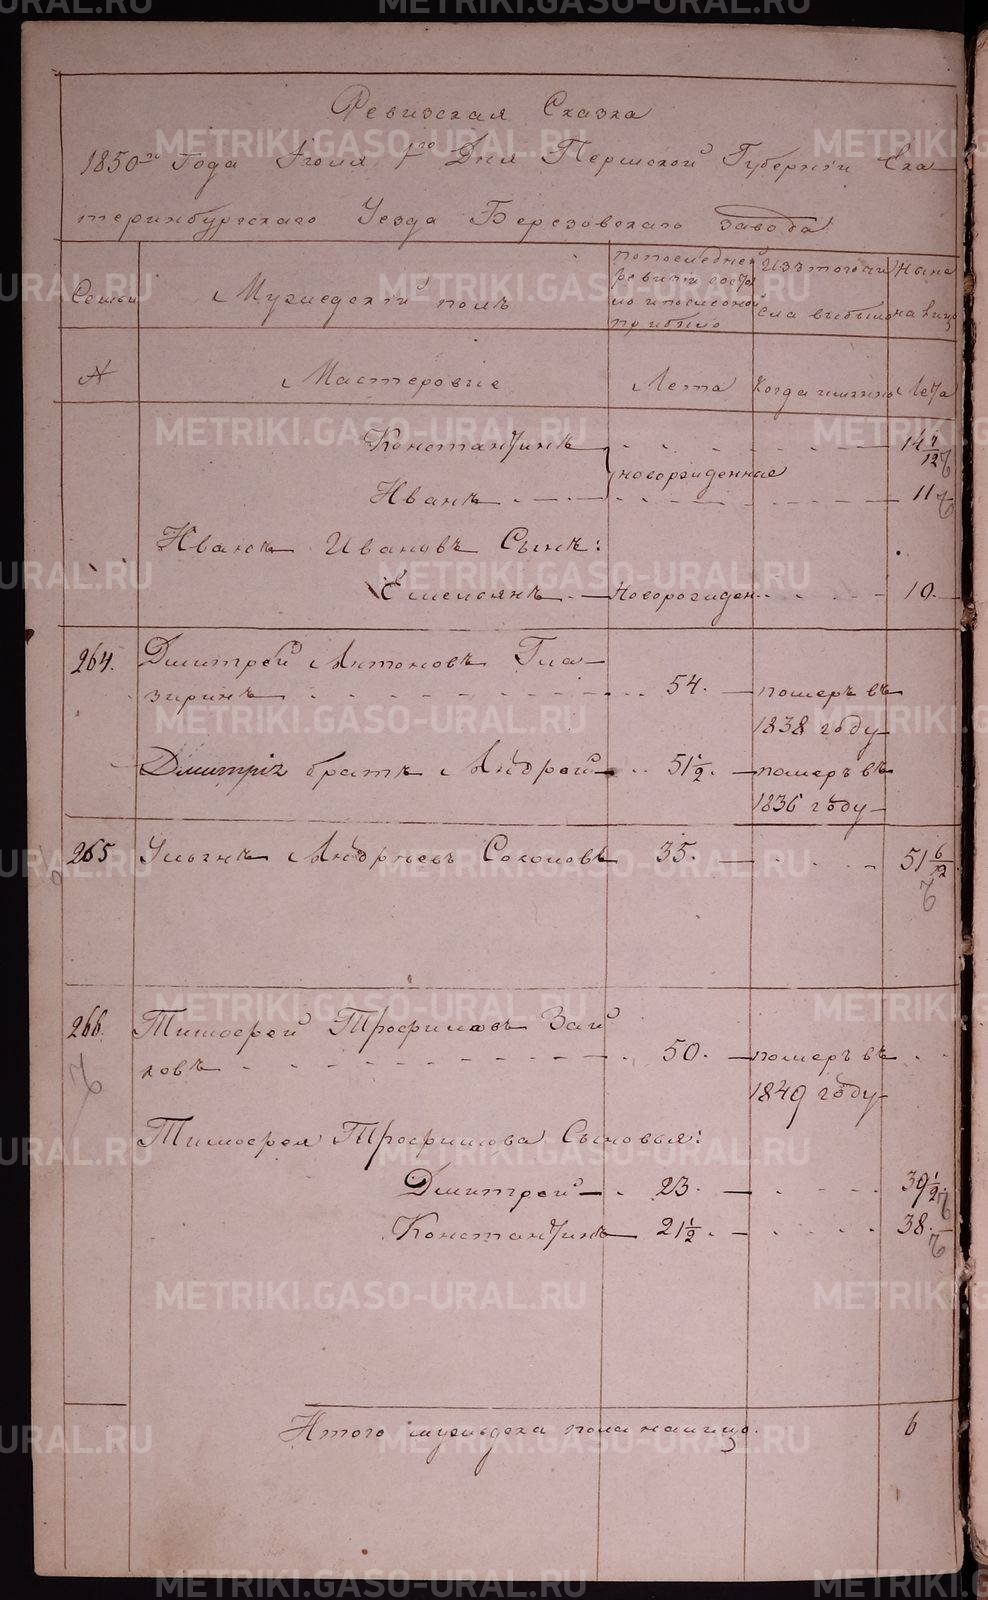 Ревизская Сказка
1850го Года Июля 1го Дня Пермской Губернии Ека
теринбургскаго Уезда Березовскаго завода
Семьи
Мужескій полъ
по последней
ревизіи состоя
ло и после оной
прибыло
Изъ того чи
сла выбыло
Ныне
на лицо
№
Мастеровые
Лета
Когда именно
Лета
Константинъ
14 4/12
новорожденные
Иванъ 11
Ивана Иванова Сынъ:
Емельянъ Новорожден 10
264. Дмитрей Антоновъ Гла
зыринъ 54. померъ въ
1838 году
Дмитрія братъ Андрей 51 1/2. померъ въ
1836 году
265 Ульянъ Андреевъ Соколовъ 35. 51 6/12
266. Тимофей Трофимовъ Зай
ковъ 50. померъ въ
1849 году
Тимофея Трофимова Сыновья:
Дмитрей 23. 39 1/2
Константинъ 21 1/2. 38.
Итого мужеска пола налицо. 6
METRIKI.GASO-URAL.RU